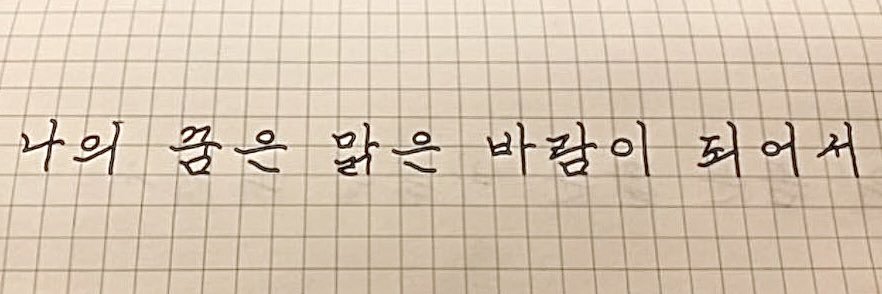 나의 꿈은 맑은 바람이 되어서